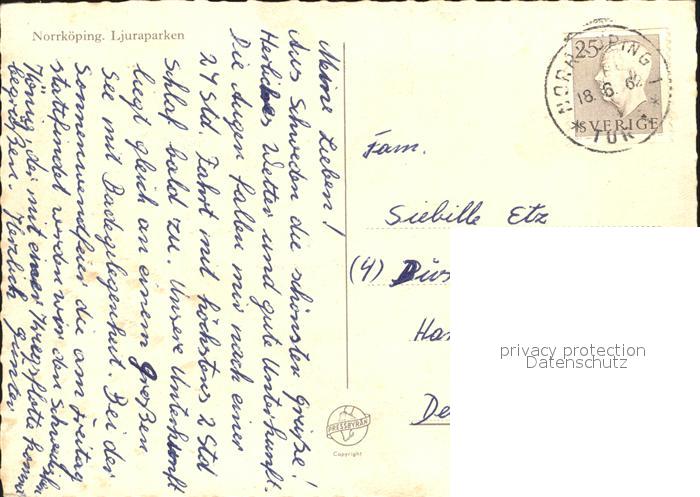 Norrköping. Ljuraparken
Meine Lieben!
Aus Schweden die schönsten Grüße!
Herrliches Wetter und gute Unterkunft.
Die Augen fallen mir nach einer
24 Std. Fahrt mit höchstens 2 Std
Schlaf bald zu. Unsere Unterkunft
liegt gleich an einem großen
See mit Badegelegenheit. Bei der
Sonnenwendfeier die am Freitag
stattfindet werden wir den Schwedischen
König, der mit einer Kriegsflotte kommt
begrüßen. Herzlich
25
NORRKÖPING 1
18. 6. 62
SVERIGE
Fam.
Siebille Etz
(4) Düs
Ha
De
PRESSBYRÅN
Copyright
privacy protection
Datenschutz